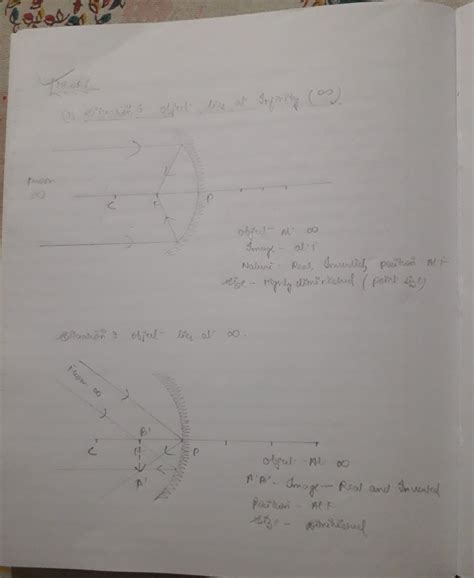 (1) Situation : object lies at Infinity (∞)
From
∞
C F P
object - At ∞
Image - at F
Nature - Real, Inverted, position At F
Size - Highly diminished (point size)
Situation : object lies at ∞.
From ∞
B'
C F P
A'
object - At ∞
A'B' - Image - Real and Inverted
Position - At F
Size - Diminished